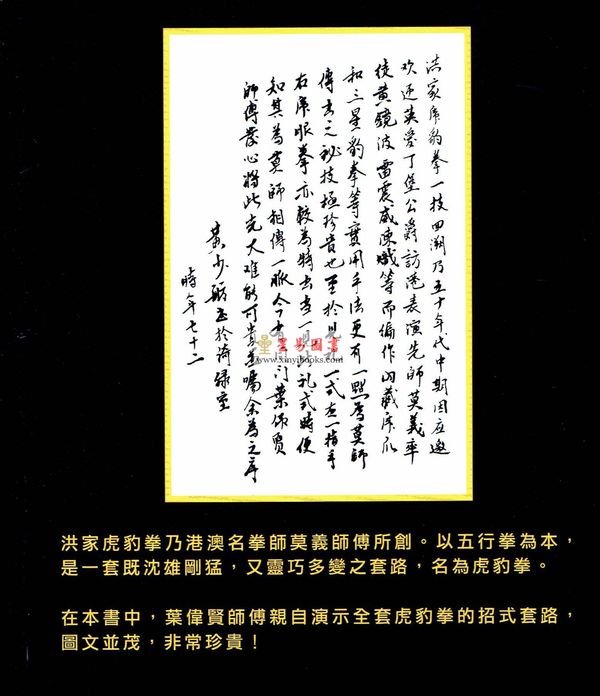 洪家虎豹拳一技回溯乃五十年代中期因应邀
欢迎英爱丁堡公爵訪港表演先師莫義率
徒黄鏡波雷震威陳等而编作内藏虎爪
和三星豹拳等實用手法更有一點為莫師
傳去之秘技極珍贵也至於見礼一式左一指手
右虎眼拳亦較為特出当一見礼式時便
知其為莫師相傳一脈今门葉偉賢
師傅發心將此光大难能可贵並囑余為之序
黄少於室
時年七十二
星易圖書
www.xinyibooks.com
洪家虎豹拳乃港澳名拳師莫義師傅所創。以五行拳為本，
是一套既沈雄剛猛，又靈巧多變之套路，名為虎豹拳。
在本書中，葉偉賢師傅親自演示全套虎豹拳的招式套路，
圖文並茂，非常珍貴！